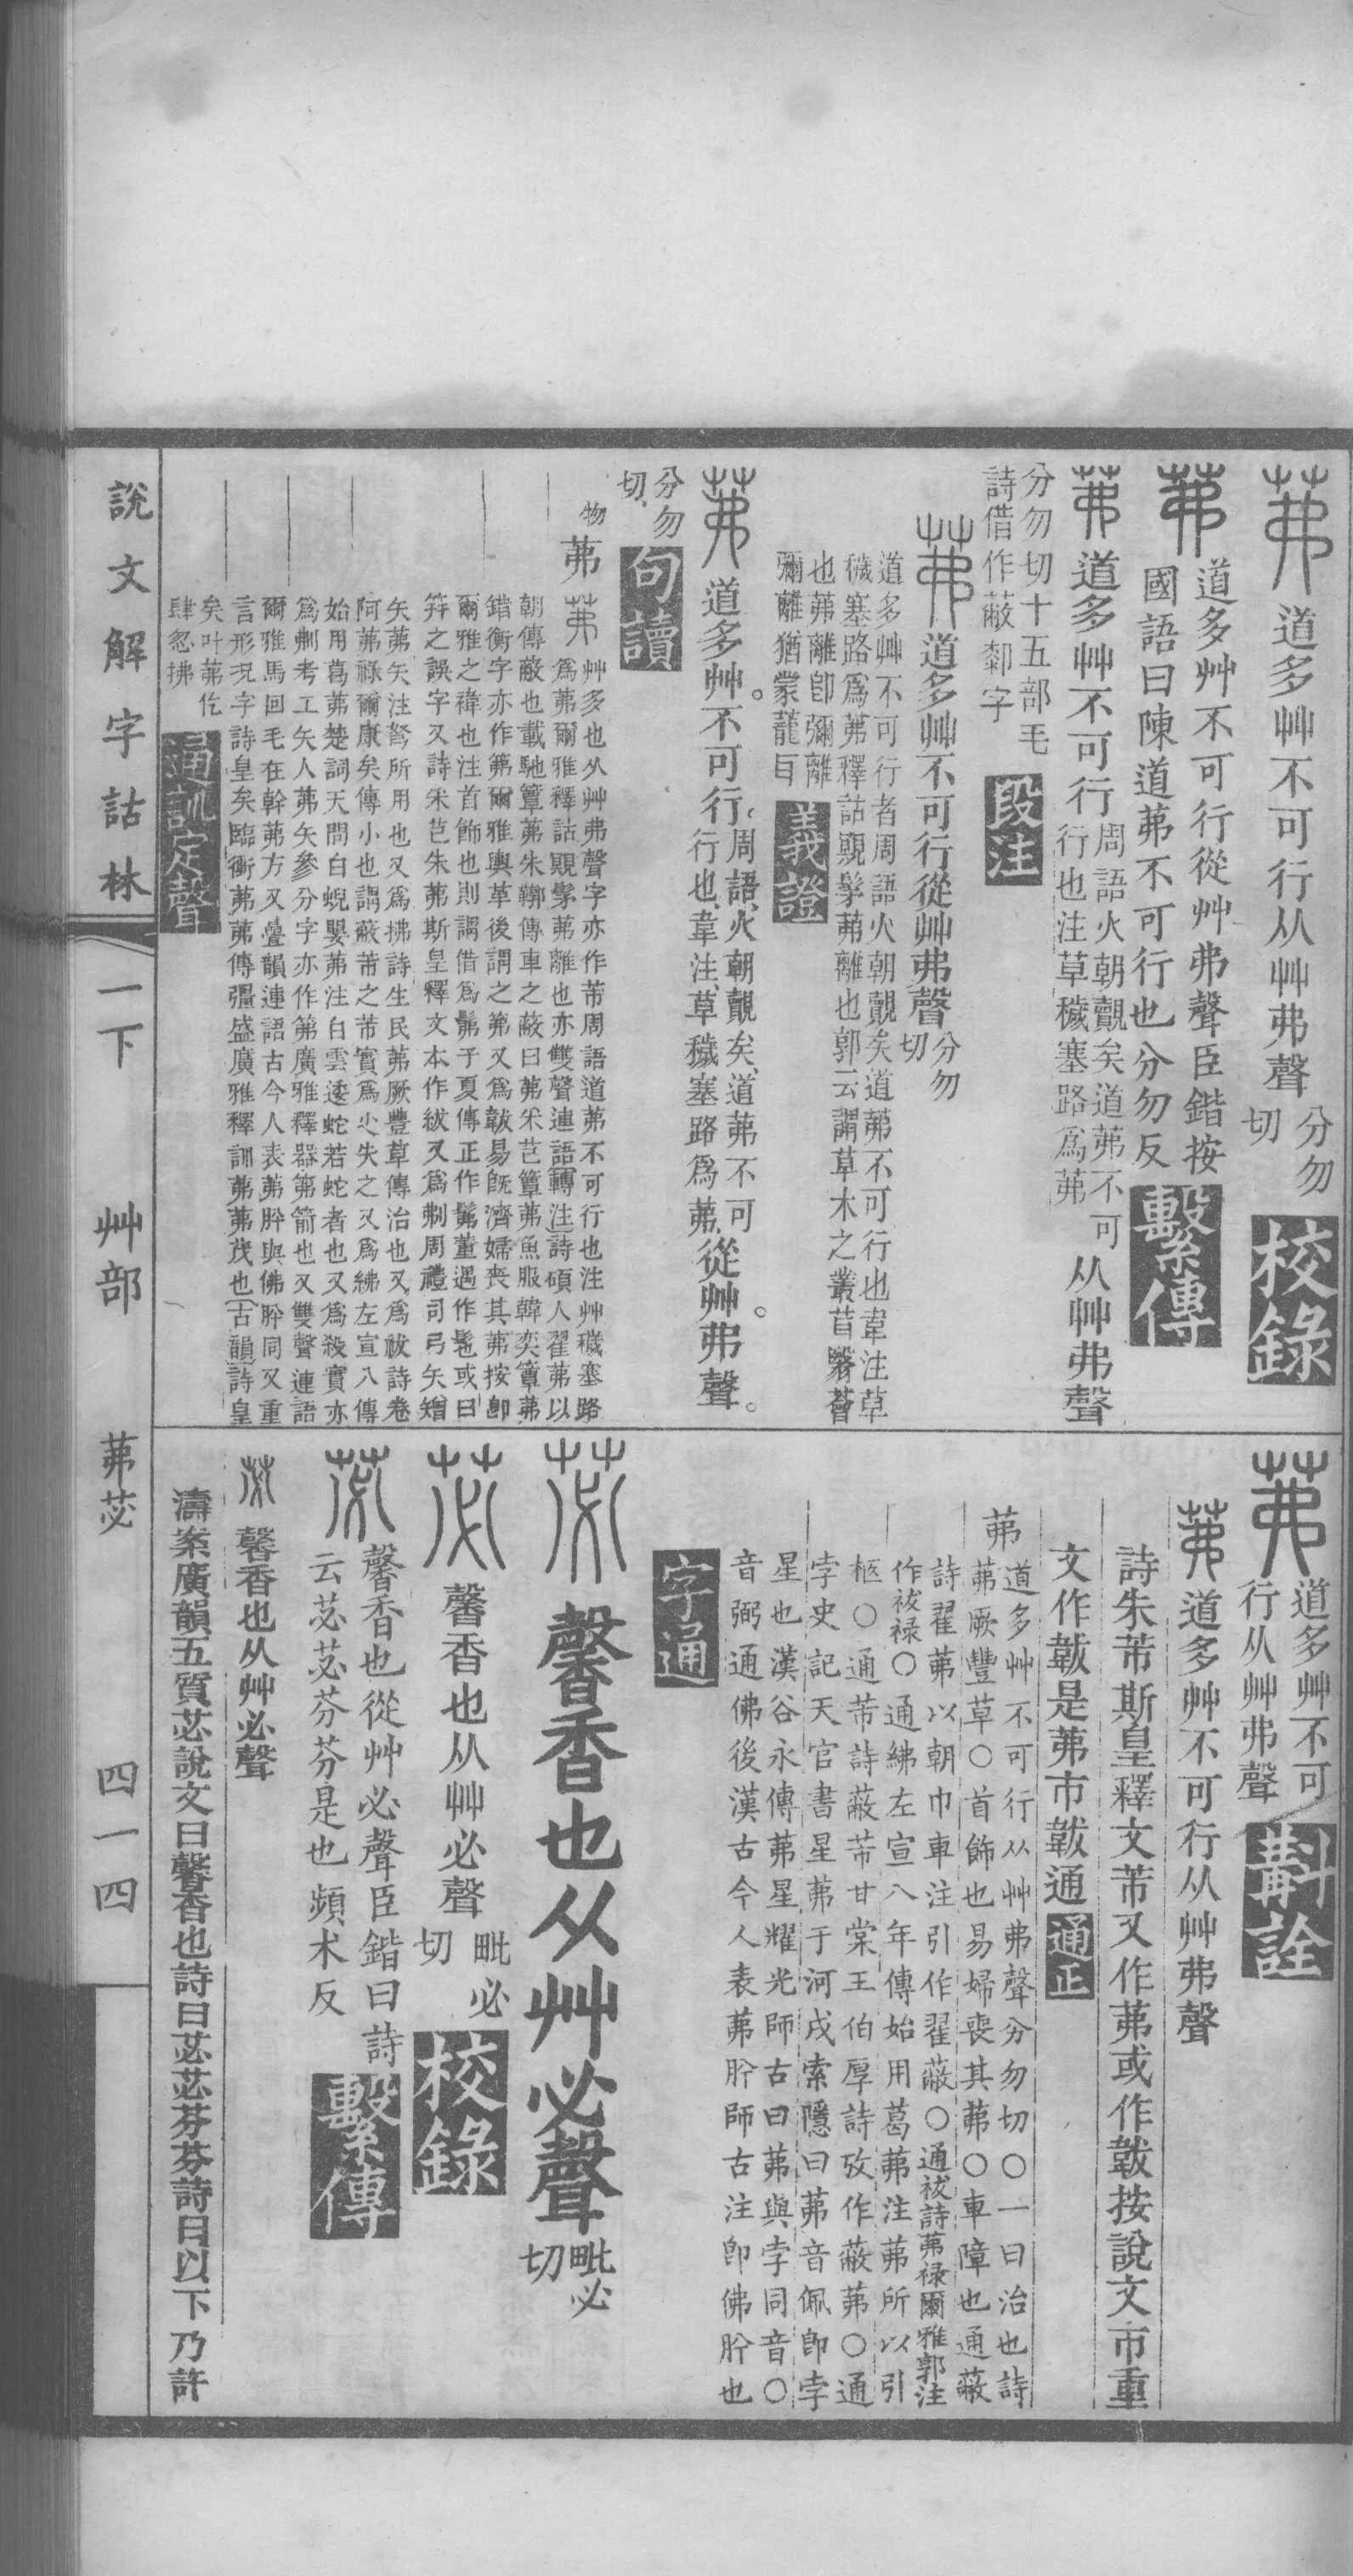 茀 道多艸不可行从艸弗聲 分勿切 校錄
茀 道多艸不可行從艸弗聲臣鍇按
國語曰陳道茀不可行也分勿反 繫傳
茀 道多艸不可行 周語火朝覿矣道茀不可
行也注草穢塞路爲茀 从艸弗聲
分勿切十五部毛
詩借作蔽厀字 段注
茀 道多艸不可行從艸弗聲 分勿切
道多艸不可行者周語火朝覿矣道茀不可行也韋注草
穢塞路爲茀釋詁覭髳茀離也郭云謂草木之叢茸翳薈
也茀離卽彌離
彌離猶蒙蘢耳 義證
茀 道多艸。不可行。 周語、火朝覿矣、道茀不可
行也、韋注、草穢塞路爲茀、 從艸。弗聲。
分勿
切、 句讀
物 茀 茀 艸多也从艸弗聲字亦作芾周語道茀不可行也注艸穢塞路
爲茀爾雅釋詁覭髳茀離也亦雙聲連語轉注詩碩人翟茀以
朝傳蔽也載馳簟茀朱鞹傳車之蔽曰茀采芑簟茀魚服韓奕簟茀
錯衡字亦作笰爾雅輿革後謂之笰又爲韍易旣濟婦喪其茀按卽
爾雅之褘也注首飾也則謂借爲髴子夏傳正作髴董遇作髢或曰
笄之誤字又詩采芑朱茀斯皇釋文本作紱又爲刜周禮司弓矢矰
矢茀矢注弩所用也又爲拂詩生民茀厥豐草傳治也又爲祓詩卷
阿茀祿爾康矣傳小也謂蔽芾之芾實爲尐失之又爲紼左宣八傳
始用葛茀楚詞天問白蜺嬰茀注白雲逶蛇若蛇者也又爲殺實亦
爲刜考工矢人茀矢參分字亦作笰廣雅釋器笰箭也又雙聲連語
爾雅馬回毛在幹茀方又疊韻連語古今人表茀肸與佛肸同又重
言形況字詩皇矣臨衝茀茀傳彊盛廣雅釋訓茀茀茂也古韻詩皇
矣叶茀仡
肆忽拂 通訓定聲
茀 道多艸不可
行从艸弗聲 斠詮
茀 道多艸不可行从艸弗聲
詩朱芾斯皇釋文芾又作茀或作韍按說文市重
文作韍是茀市韍通 通正
茀 道多艸不可行从艸弗聲分勿切○一曰治也詩
茀厥豐草○首飾也易婦喪其茀○車障也通蔽
詩翟茀以朝巾車注引作翟蔽○通祓詩茀祿爾雅郭注
作祓祿○通紼左宣八年傳始用葛茀注茀所以引
柩○通芾詩蔽芾甘棠王伯厚詩攷作蔽茀○通
孛史記天官書星茀于河戍索隱曰茀音佩卽孛
星也漢谷永傳茀星耀光師古曰茀與孛同音○
音弼通佛後漢古今人表茀肸師古注卽佛肸也
字通
苾 馨香也从艸必聲 毗必切
苾 馨香也从艸必聲 毗必切 校錄
苾 馨香也從艸必聲臣鍇曰詩
云苾苾芬芬是也頻朮反 繫傳
苾 馨香也从艸必聲
濤案廣韻五質苾說文曰馨香也詩曰苾苾芬芬詩曰以下乃許
說文解字詁林 一下 艸部 茀苾 四一四